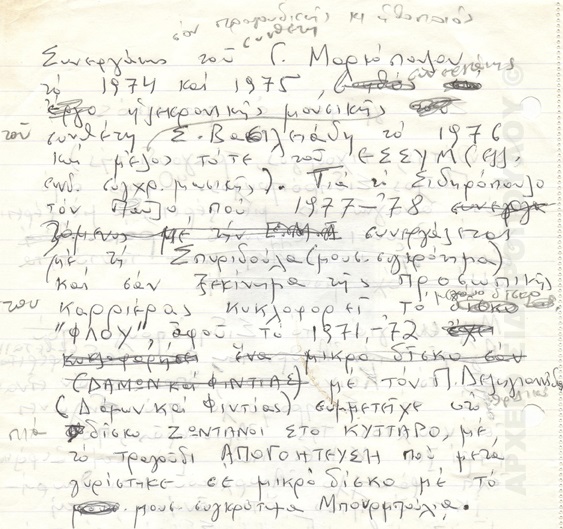 σαν τραγουδιστής κι ηθοποιός
συνθέτη
Συνεργάτης τοῦ Γ. Μαρκόπουλου
τό 1974 καί 1975, συνεργάτης
ἔργο ἠλεκτρονικῆς μουσικῆς
τοῦ συνθέτη Σ. Βασιλειάδη τό 1976
καί μέλος τότε τοῦ ΕΣΣΥΜ (ελλ.
συνδ. συγχρ. μουσικῆς). Γιά τό Σιδηρόπουλο
τόν Παῦλο, πού 1977-'78 συνεργα
ζόμενος με τήν συνεργάζεται
μέ τή Σπυριδούλα (μουσ. συγκρότημα)
καί σάν ξεκίνημα τῆς προσωπικῆς
του καρριέρας κυκλοφορεῖ τό δίσκο
"ΦΛΟΥ", ἀφοῦ τό 1971,-72 ἔχει
κυκλοφορήσει ἕνα μικρό δίσκο σάν
(ΔΑΜΩΝ καί ΦΙΝΤΙΑΣ) μέ τόν Π. Δεληγιαννίδη
(Δάμων καί Φιντίας) συμμετεῖχε στό
πιά δίσκο ΖΩΝΤΑΝΟΙ ΣΤΟ ΚΥΤΤΑΡΟ, με
τό τραγούδι ΑΠΟΓΟΗΤΕΥΣΗ πού μετά
γυρίστηκε σε μικρό δίσκο μέ τό
μουσ. συγκρότημα Μπουρμπούλια.